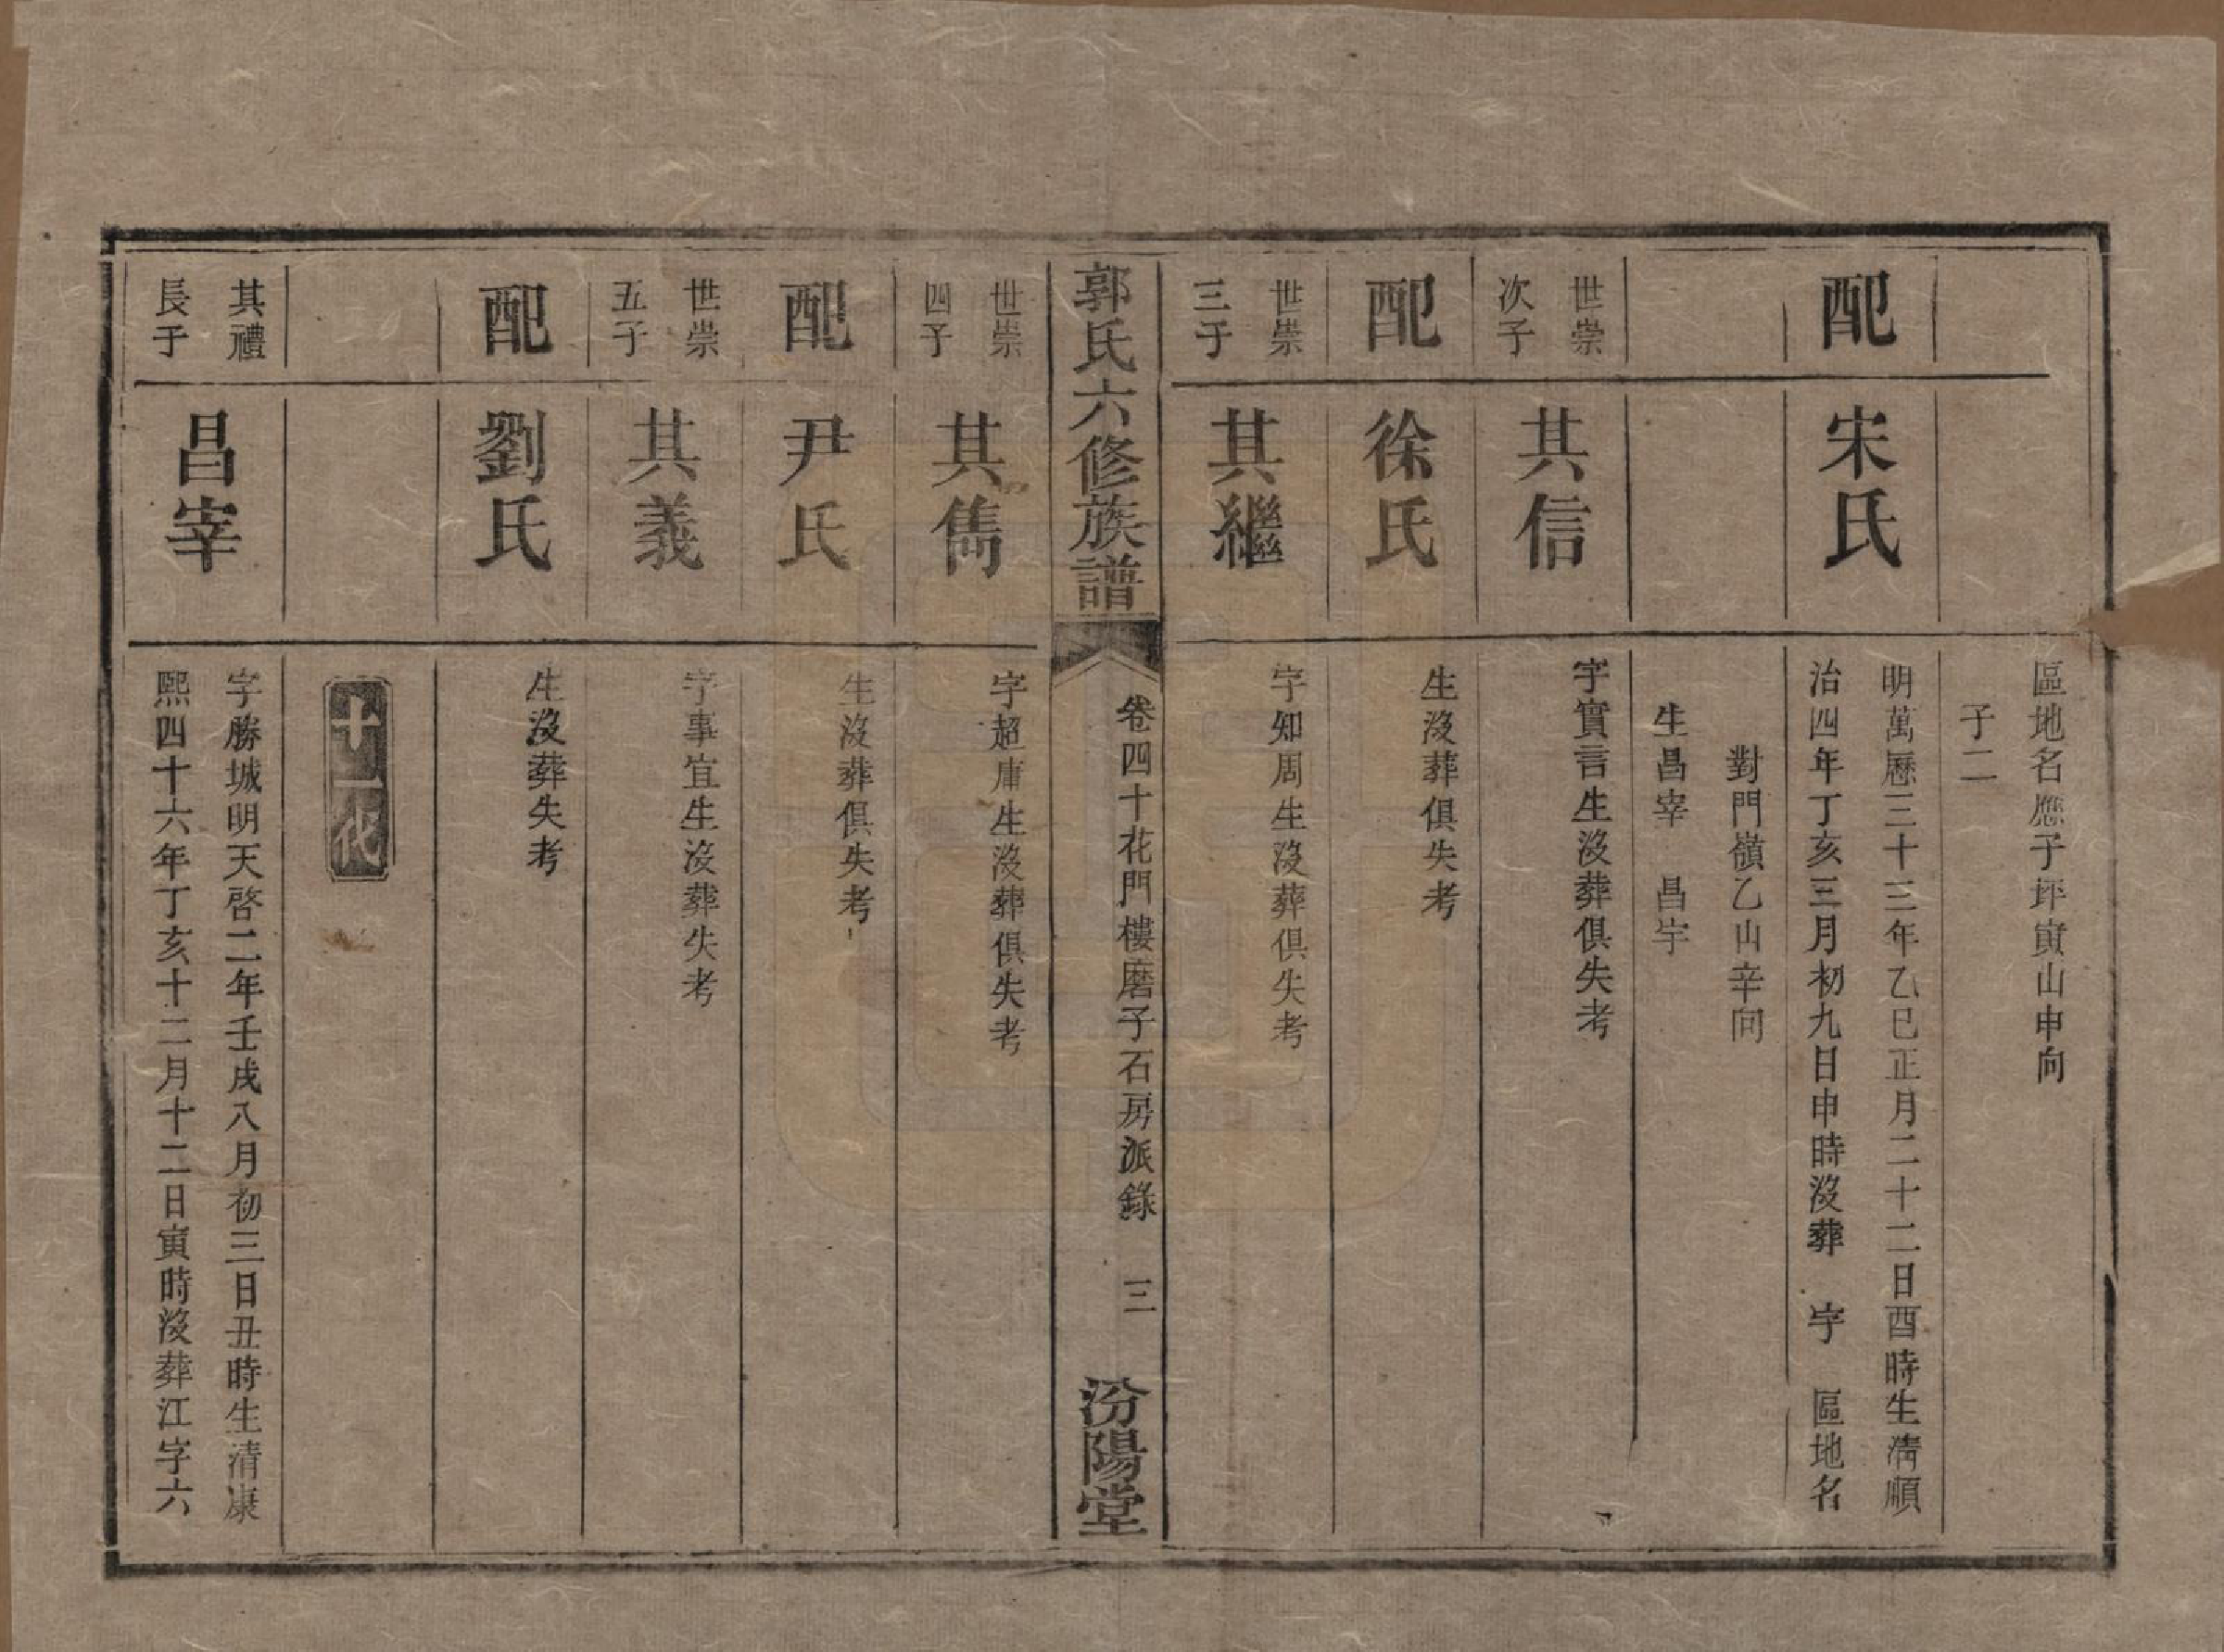 區地名應子坪寅山申向
子二
配
宋氏
明萬曆三十三年乙巳正月二十二日酉時生淸順
治四年丁亥三月初九日申時沒葬 字 區地名
對門嶺乙山辛向
生昌宰 昌宇
世崇
次子
其信
字實言生沒葬俱失考
配
徐氏
生沒葬俱失考
世崇
三子
其繼
字知周生沒葬俱失考
郭氏六修族譜
卷四十花門樓磨子石房派錄 三
汾陽堂
世崇
四子
其雋
字超庸生沒葬俱失考
配
尹氏
生沒葬俱失考
世崇
五子
其義
字事宜生沒葬失考
配
劉氏
生沒葬失考
十一代
其禮
長子
昌宰
字勝城明天啓二年壬戌八月初三日丑時生清康
熙四十六年丁亥十二月十二日寅時沒葬江字六